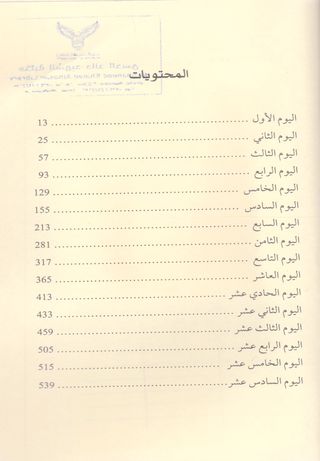 المحتويات
اليوم الأول ........................ 13
اليوم الثاني ........................ 25
اليوم الثالث ........................ 57
اليوم الرابع ........................ 93
اليوم الخامس ........................ 129
اليوم السادس ........................ 155
اليوم السابع ........................ 213
اليوم الثامن ........................ 281
اليوم التاسع ........................ 317
اليوم العاشر ........................ 365
اليوم الحادي عشر ........................ 413
اليوم الثاني عشر ........................ 433
اليوم الثالث عشر ........................ 459
اليوم الرابع عشر ........................ 505
اليوم الخامس عشر ........................ 515
اليوم السادس عشر ........................ 539